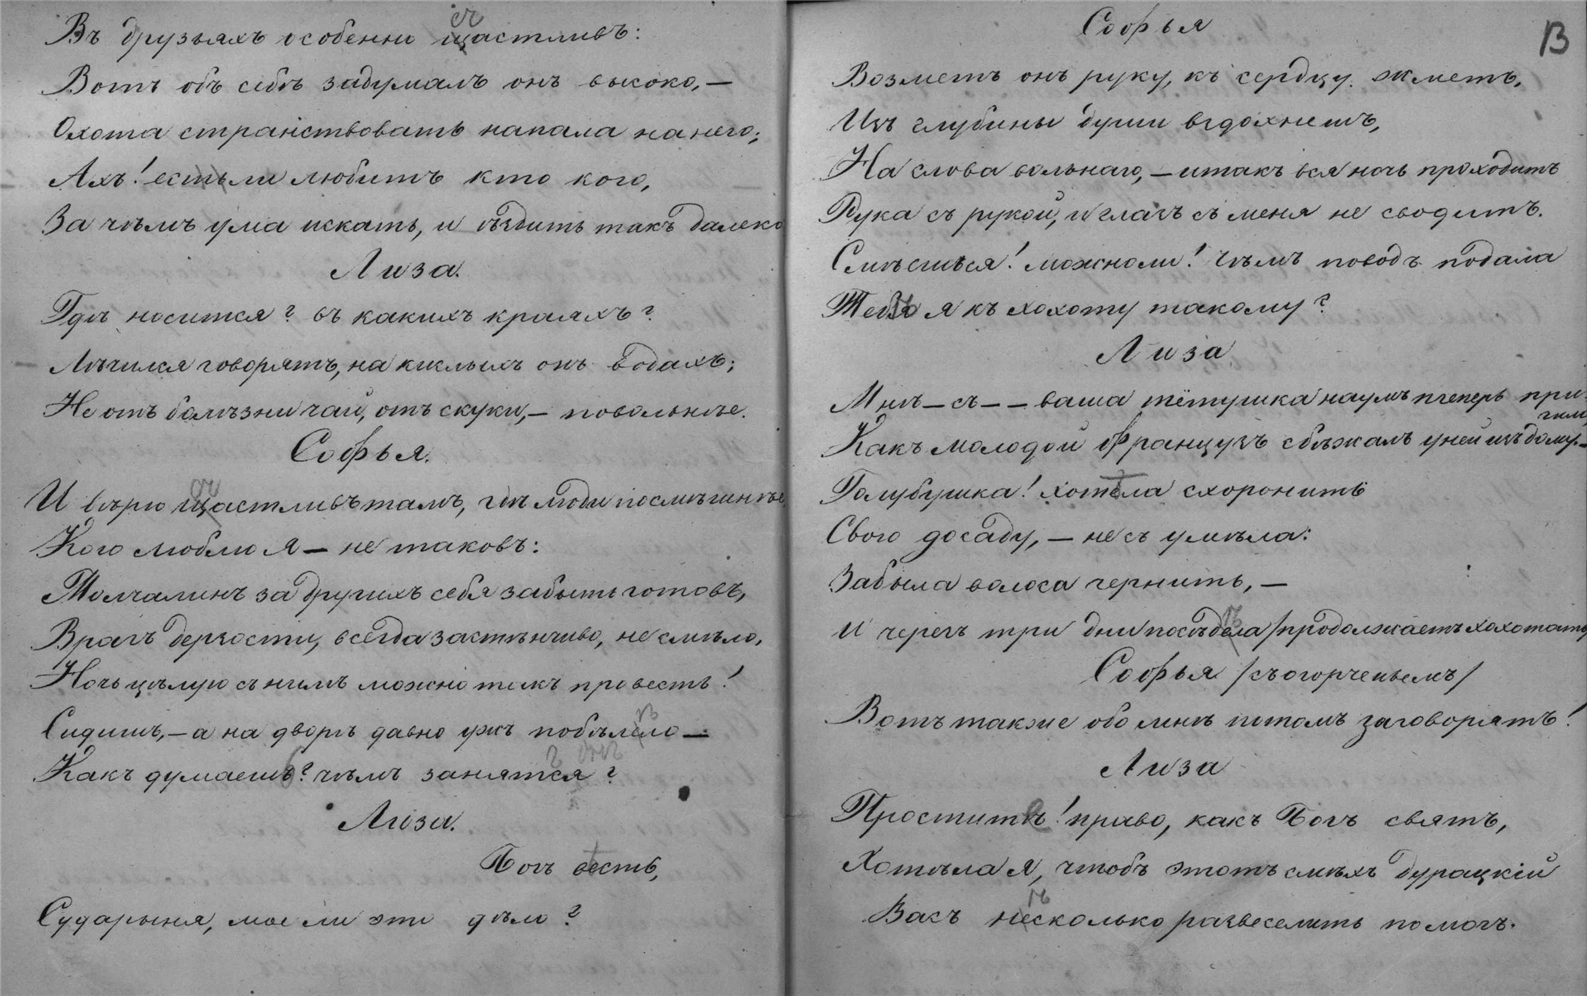 Въ друзьяхъ особенно счастливъ:
Вотъ объ себѣ задумалъ онъ высоко, —
Охота странствовать напала на него;
Ахъ! естьли любитъ кто кого,
За чѣмъ ума искать, и ѣздить такъ далеко
Лиза.
Гдѣ носится? въ какихъ краяхъ?
Лѣчился говорятъ, на кислыхъ онъ водахъ;
Не отъ болѣзни чай, отъ скуки, — повольнѣе.
Софья.
И вѣрно счастливъ тамъ, гдѣ люди посмѣшнѣе
Кого люблю я — не таковъ:
Молчалинъ за другихъ себя забыть готовъ,
Врагъ дерзости, всегда застѣнчиво, несмѣло,
Ночь цѣлую съ нимъ можно такъ провесть!
Сидимъ, — а на дворѣ давно ужъ побѣлѣло —
Какъ думаешь? чѣмъ заняты?
Лиза.
Богъ вѣсть,
Сударыня, мое ли это дѣло?
13
Софья
Возметъ онъ руку, къ сердцу жметъ,
Изъ глубины души вздохнетъ,
Ни слова вольнаго, — и такъ вся ночь проходитъ
Рука съ рукой, и глазъ съ меня не сводитъ.
Смѣешься! можноли! чѣмъ поводъ подала
Тебѣ я къ хохоту такому?
Лиза
Мнѣ — съ — — ваша тётушка на умъ теперь пришла,
Какъ молодой французъ сбѣжалъ у ней изъ дому —
Голубушка! хотѣла схоронить
Свою досаду, — не съумѣла:
Забыла волоса чернить, —
И черезъ три дни посѣдѣла /продолжаетъ хохотать/
Софья /съ огорченьемъ/
Вотъ также обо мнѣ потомъ заговорятъ!
Лиза
Простите! право, какъ Богъ святъ,
Хотѣла я, чтобъ этотъ смѣхъ дурацкій
Васъ нѣсколько развеселить помогъ.